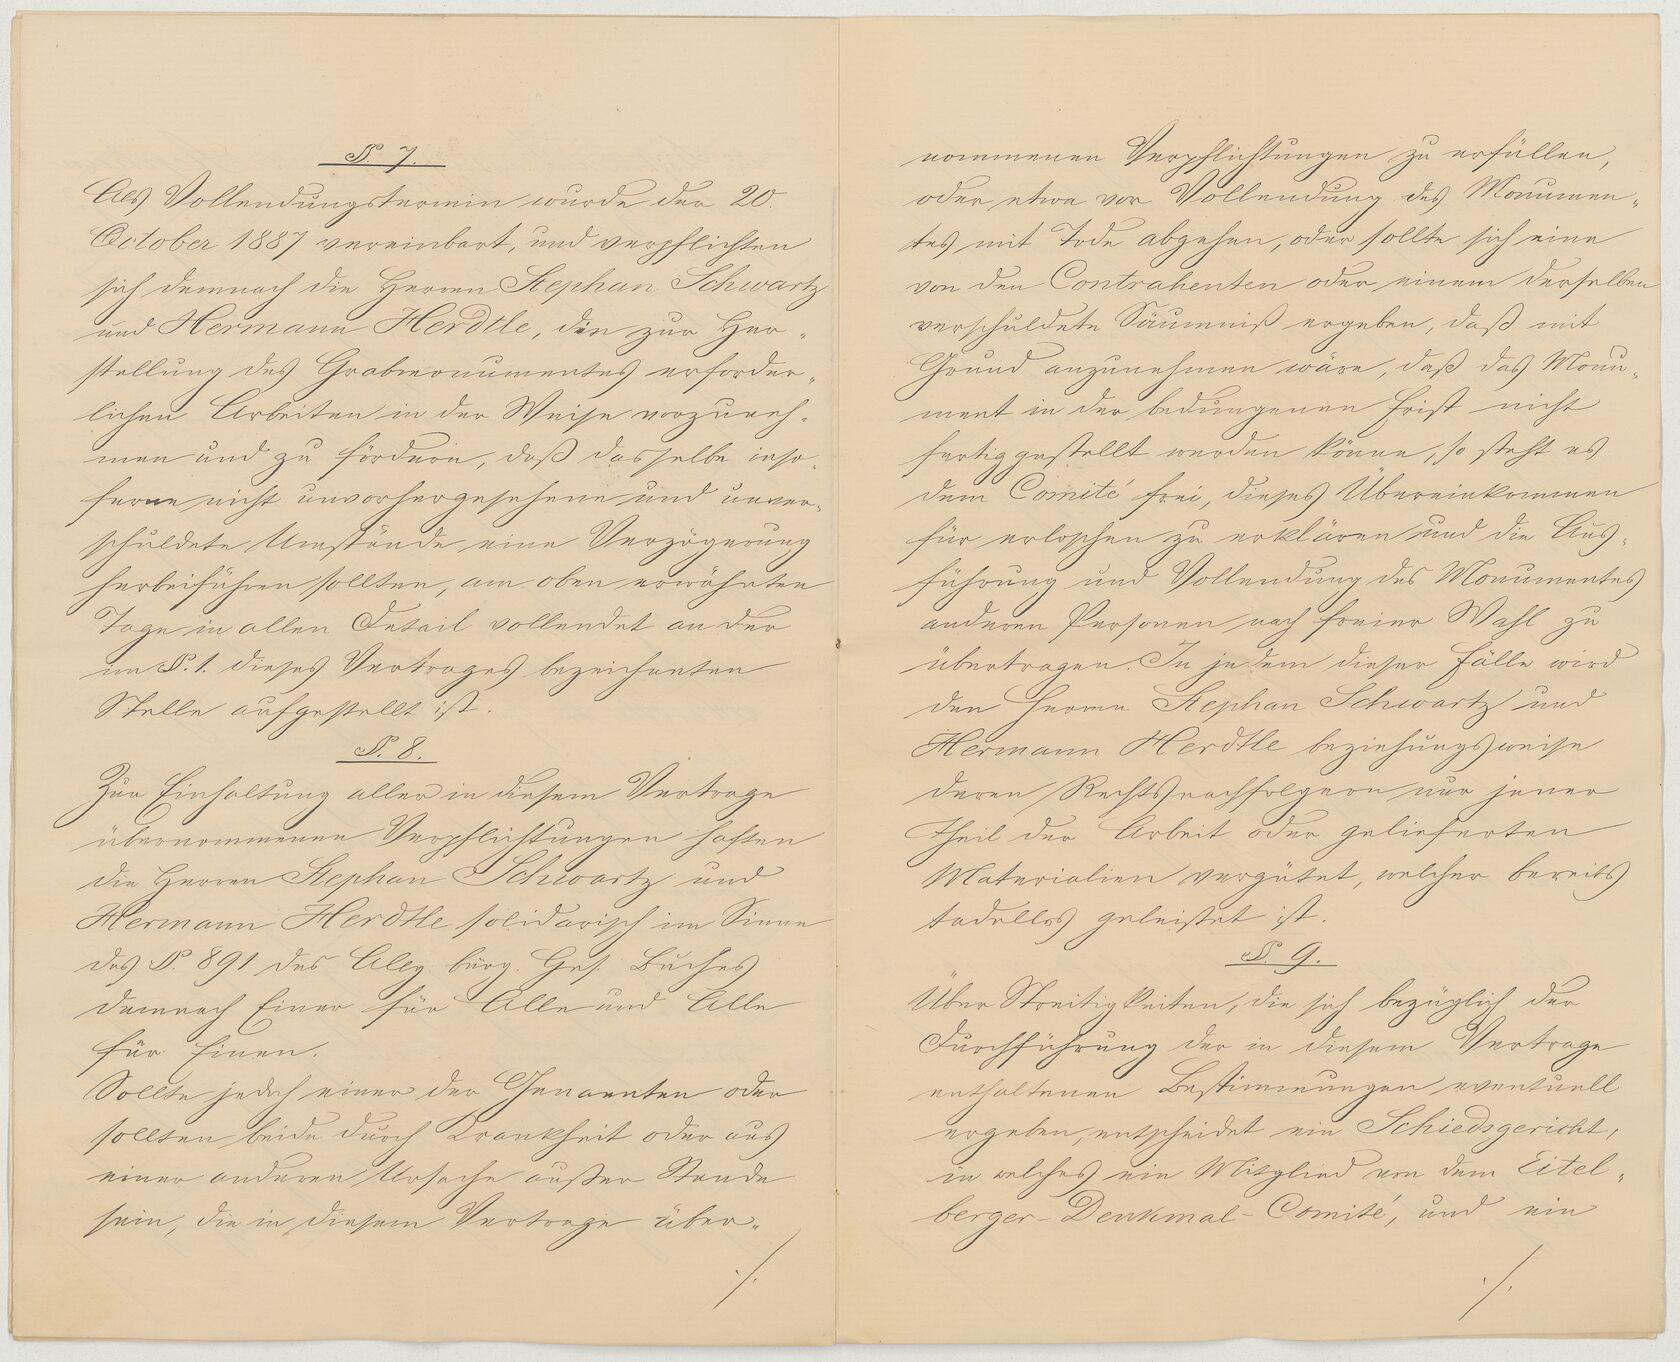 §. 7.
Als Vollendungstermin wurde der 20.
October 1887 vereinbart, und verpflichten
sich demnach die Herren Stephan Schwartz
und Hermann Herdtle, die zur Her-
stellung des Grabmonumentes erforder-
lichen Arbeiten in der Weise vorzuneh-
men und zu fördern, daß dasselbe inso-
ferne nicht unvorhergesehene und unver-
schuldete Umstände eine Verzögerung
herbeiführen sollten, am oben erwähnten
Tage in allen Detail vollendet an der
im §. 1. dieses Vertrages bezeichneten
Stelle aufgestellt ist.
§. 8.
Zur Einhaltung aller in diesem Vertrage
übernommenen Verpflichtungen haften
die Herren Stephan Schwartz und
Hermann Herdtle solidarisch im Sinne
des §. 891 des Allg bürg. Ges. Buches
demnach Einer für Alle und Alle
für Einen.
Sollte jedoch einer der Genannten oder
sollten beide durch Krankheit oder aus
einer anderen Ursache außer Stande
sein, die in diesem Vertrage über-
./.
nommenen Verpflichtungen zu erfüllen,
oder etwa vor Vollendung des Monumen-
tes mit Tode abgehen, oder sollte sich eine
von den Contrahenten oder einem derselben
verschuldete Säumniß ergeben, daß mit
Grund anzunehmen wäre, daß das Monu-
ment in der bedungenen Frist nicht
fertiggestellt werden könne, so steht es
dem Comité frei, dieses Übereinkommen
für erloschen zu erklären und die Aus-
führung und Vollendung des Monumentes
anderen Personen nach freier Wahl zu
übertragen. In jedem dieser Fälle wird
den Herren Stephan Schwartz und
Hermann Herdtle beziehungsweise
deren Rechtsnachfolgern nur jener
Theil der Arbeit oder gelieferten
Materialien vergütet, welcher bereits
tadellos geleistet ist.
§. 9.
Über Streitigkeiten, die sich bezüglich der
Durchführung der in diesem Vertrage
enthaltenen Bestimmungen eventuell
ergeben, entscheidet ein Schiedsgericht,
in welches ein Mitglied von dem Eitel-
berger-Denkmal-Comité, und ein
./.